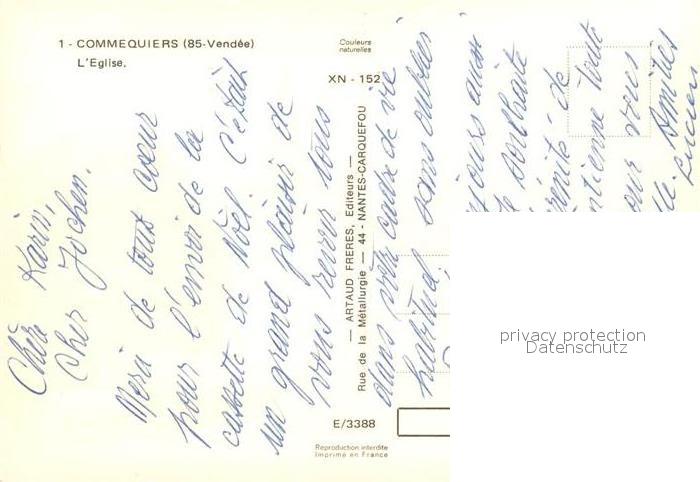 1 - COMMEQUIERS (85-Vendée)
L'Eglise.
Couleurs
naturelles
XN - 152
Chère Karin,
Cher Jochen.
Merci de tout cœur
pour l'envoi de la
cassette de Noël. C'était
un grand plaisir de
vous revoir tous
dans votre cadre de vie
habituel, sans oublier
jours aussi
souhaite
de
toute
pour vous
Amitiés
Lucien
— ARTAUD FRERES, Editeurs —
Rue de la Métallurgie — 44 - NANTES-CARQUEFOU
E/3388
Reproduction interdite
Imprimé en France
privacy protection
Datenschutz